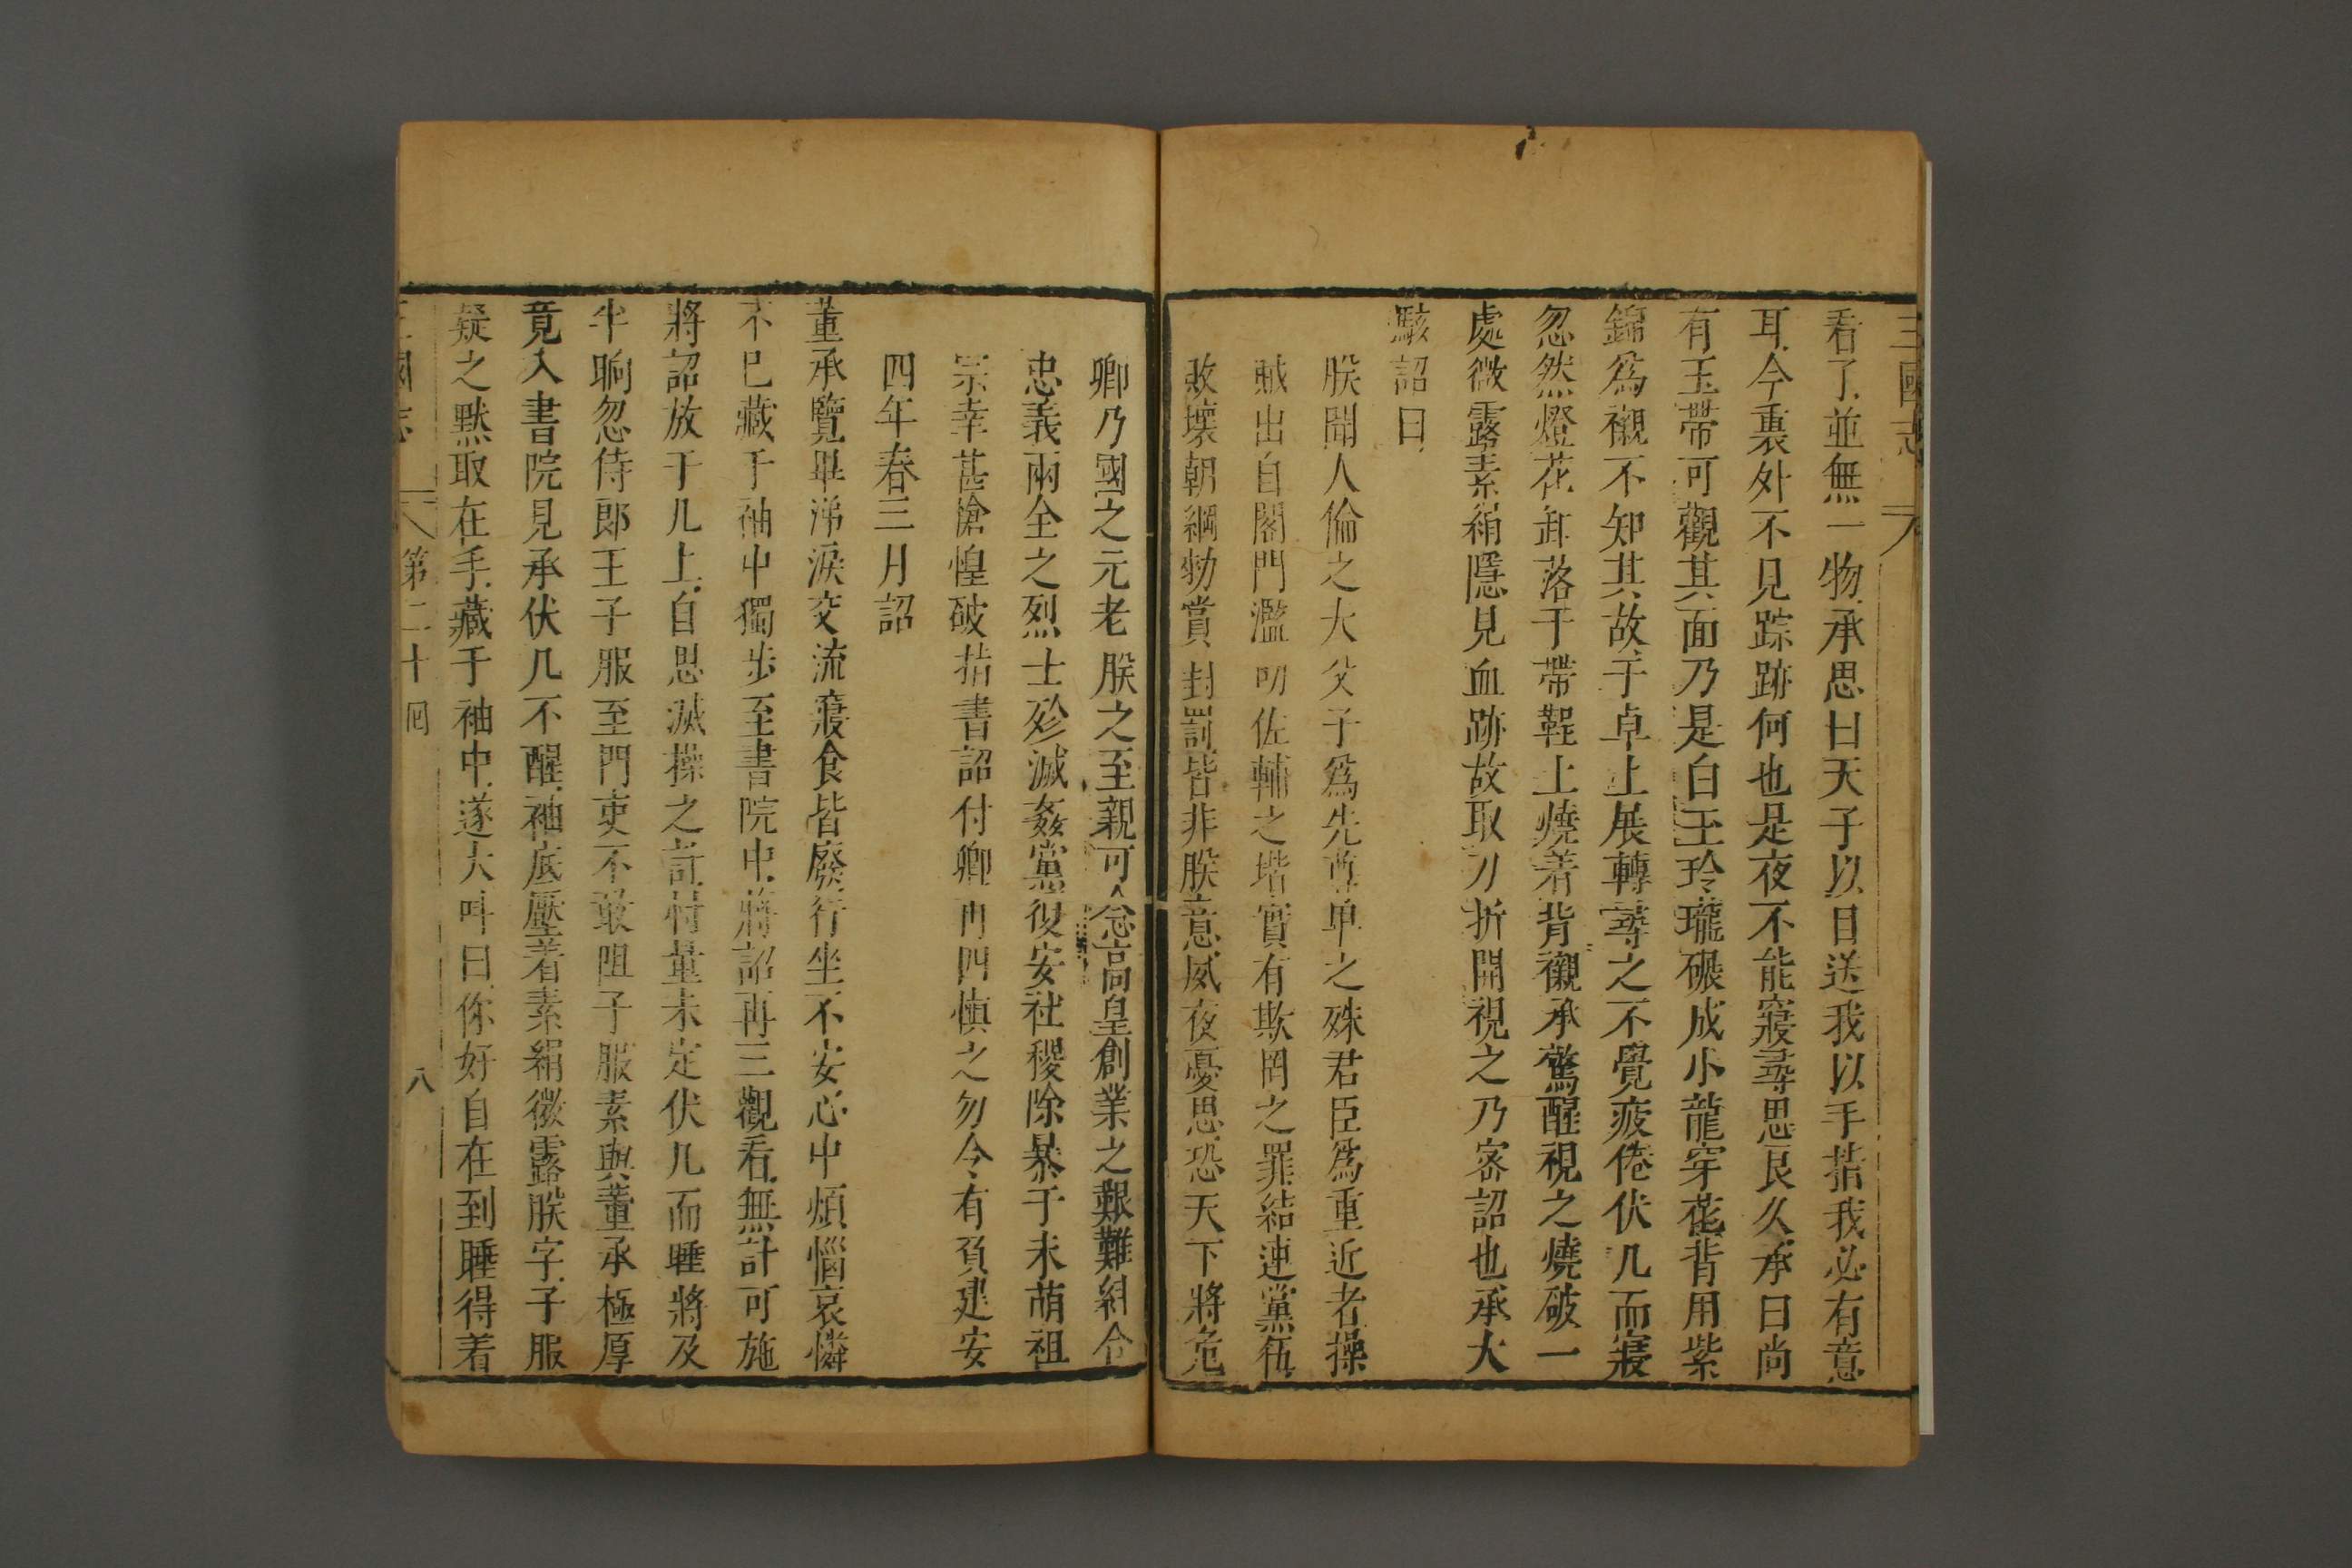 三國志
看了並無一物承思曰天子以目送我以手指我必有意
耳今裏外不見踪跡何也是夜不能寢尋思良久承曰尚
有玉帶可觀其面乃是白玉玲瓏碾成小龍穿花背用紫
錦爲襯不知其故于卓上展轉尋之不覺疲倦伏几而寢
忽然燈花卸落于帶鞓上燒着背襯承驚醒視之燒破一
處微露素絹隱見血跡故取刀折開視之乃密詔也承大
駭詔曰
朕聞人倫之大父子爲先尊卑之殊君臣爲重近者操
賊出自閣門濫叨佐輔之堦實有欺罔之罪結連黨伍
敗壞朝綱勅賞封罰皆非朕意夙夜憂思恐天下將危
卿乃國之元老朕之至親可念高皇創業之艱難糾合
忠義兩全之烈士殄滅姦黨復安社稷除暴于未萌祖
宗幸甚愴惶破指書詔付卿再四慎之勿令有負建安
四年春三月詔
董承覽畢涕淚交流寢食皆廢行坐不安心中煩惱哀憐
不已藏于袖中獨步至書院中將詔再三觀看無計可施
將詔放于几上自思滅操之計忖量未定伏几而睡將及
半晌忽侍郎王子服至門吏不敢阻子服素與董承極厚
竟入書院見承伏几不醒袖底壓着素絹微露朕字子服
疑之默取在手藏于袖中遂大叫曰你好自在到睡得着
三國志 第二十回 八